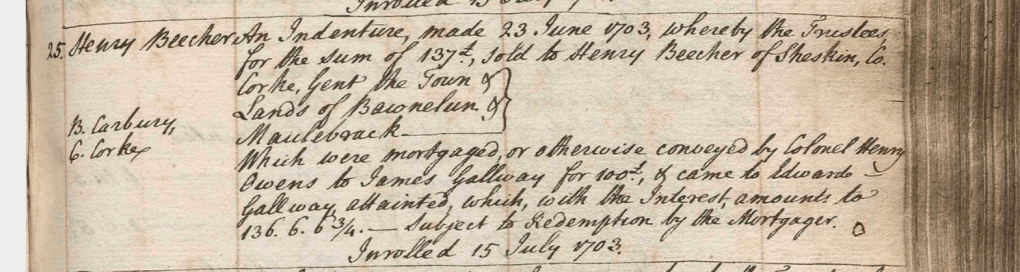 Inrolled 15 July
25. Henry Beecher An Indenture, made 23 June 1703, whereby the Trustees,
for the sum of 137£, sold to Henry Beecher of Sheskin, Co.
Corke, Gent the Town &
Lands of Bawnelun &
Maulebrack
B. Carbury,
C. Corke
Which were mortgaged, or otherwise conveyed by Colonel Henry
Owens to James Gallway for 100£, & came to Edward
Gallway attainted, which, with the Interest, amounts to
136. 6. 6 3/4. — Subject to Redemption by the Mortgager.
Inrolled 15 July 1703.